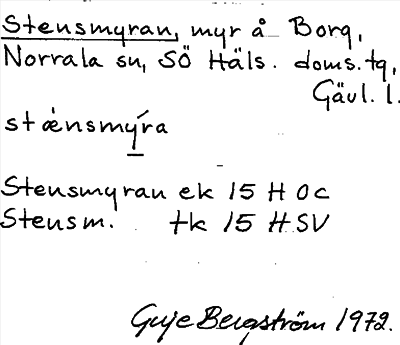 Stensmyran, myr å Borg,
Norrala sn, SÖ Häls. doms.tg,
Gävl. l.
stǽnsmýra
Stensmyran ek 15 H OC
Stensm. tk 15 H SV
Guje Bergström 1972.